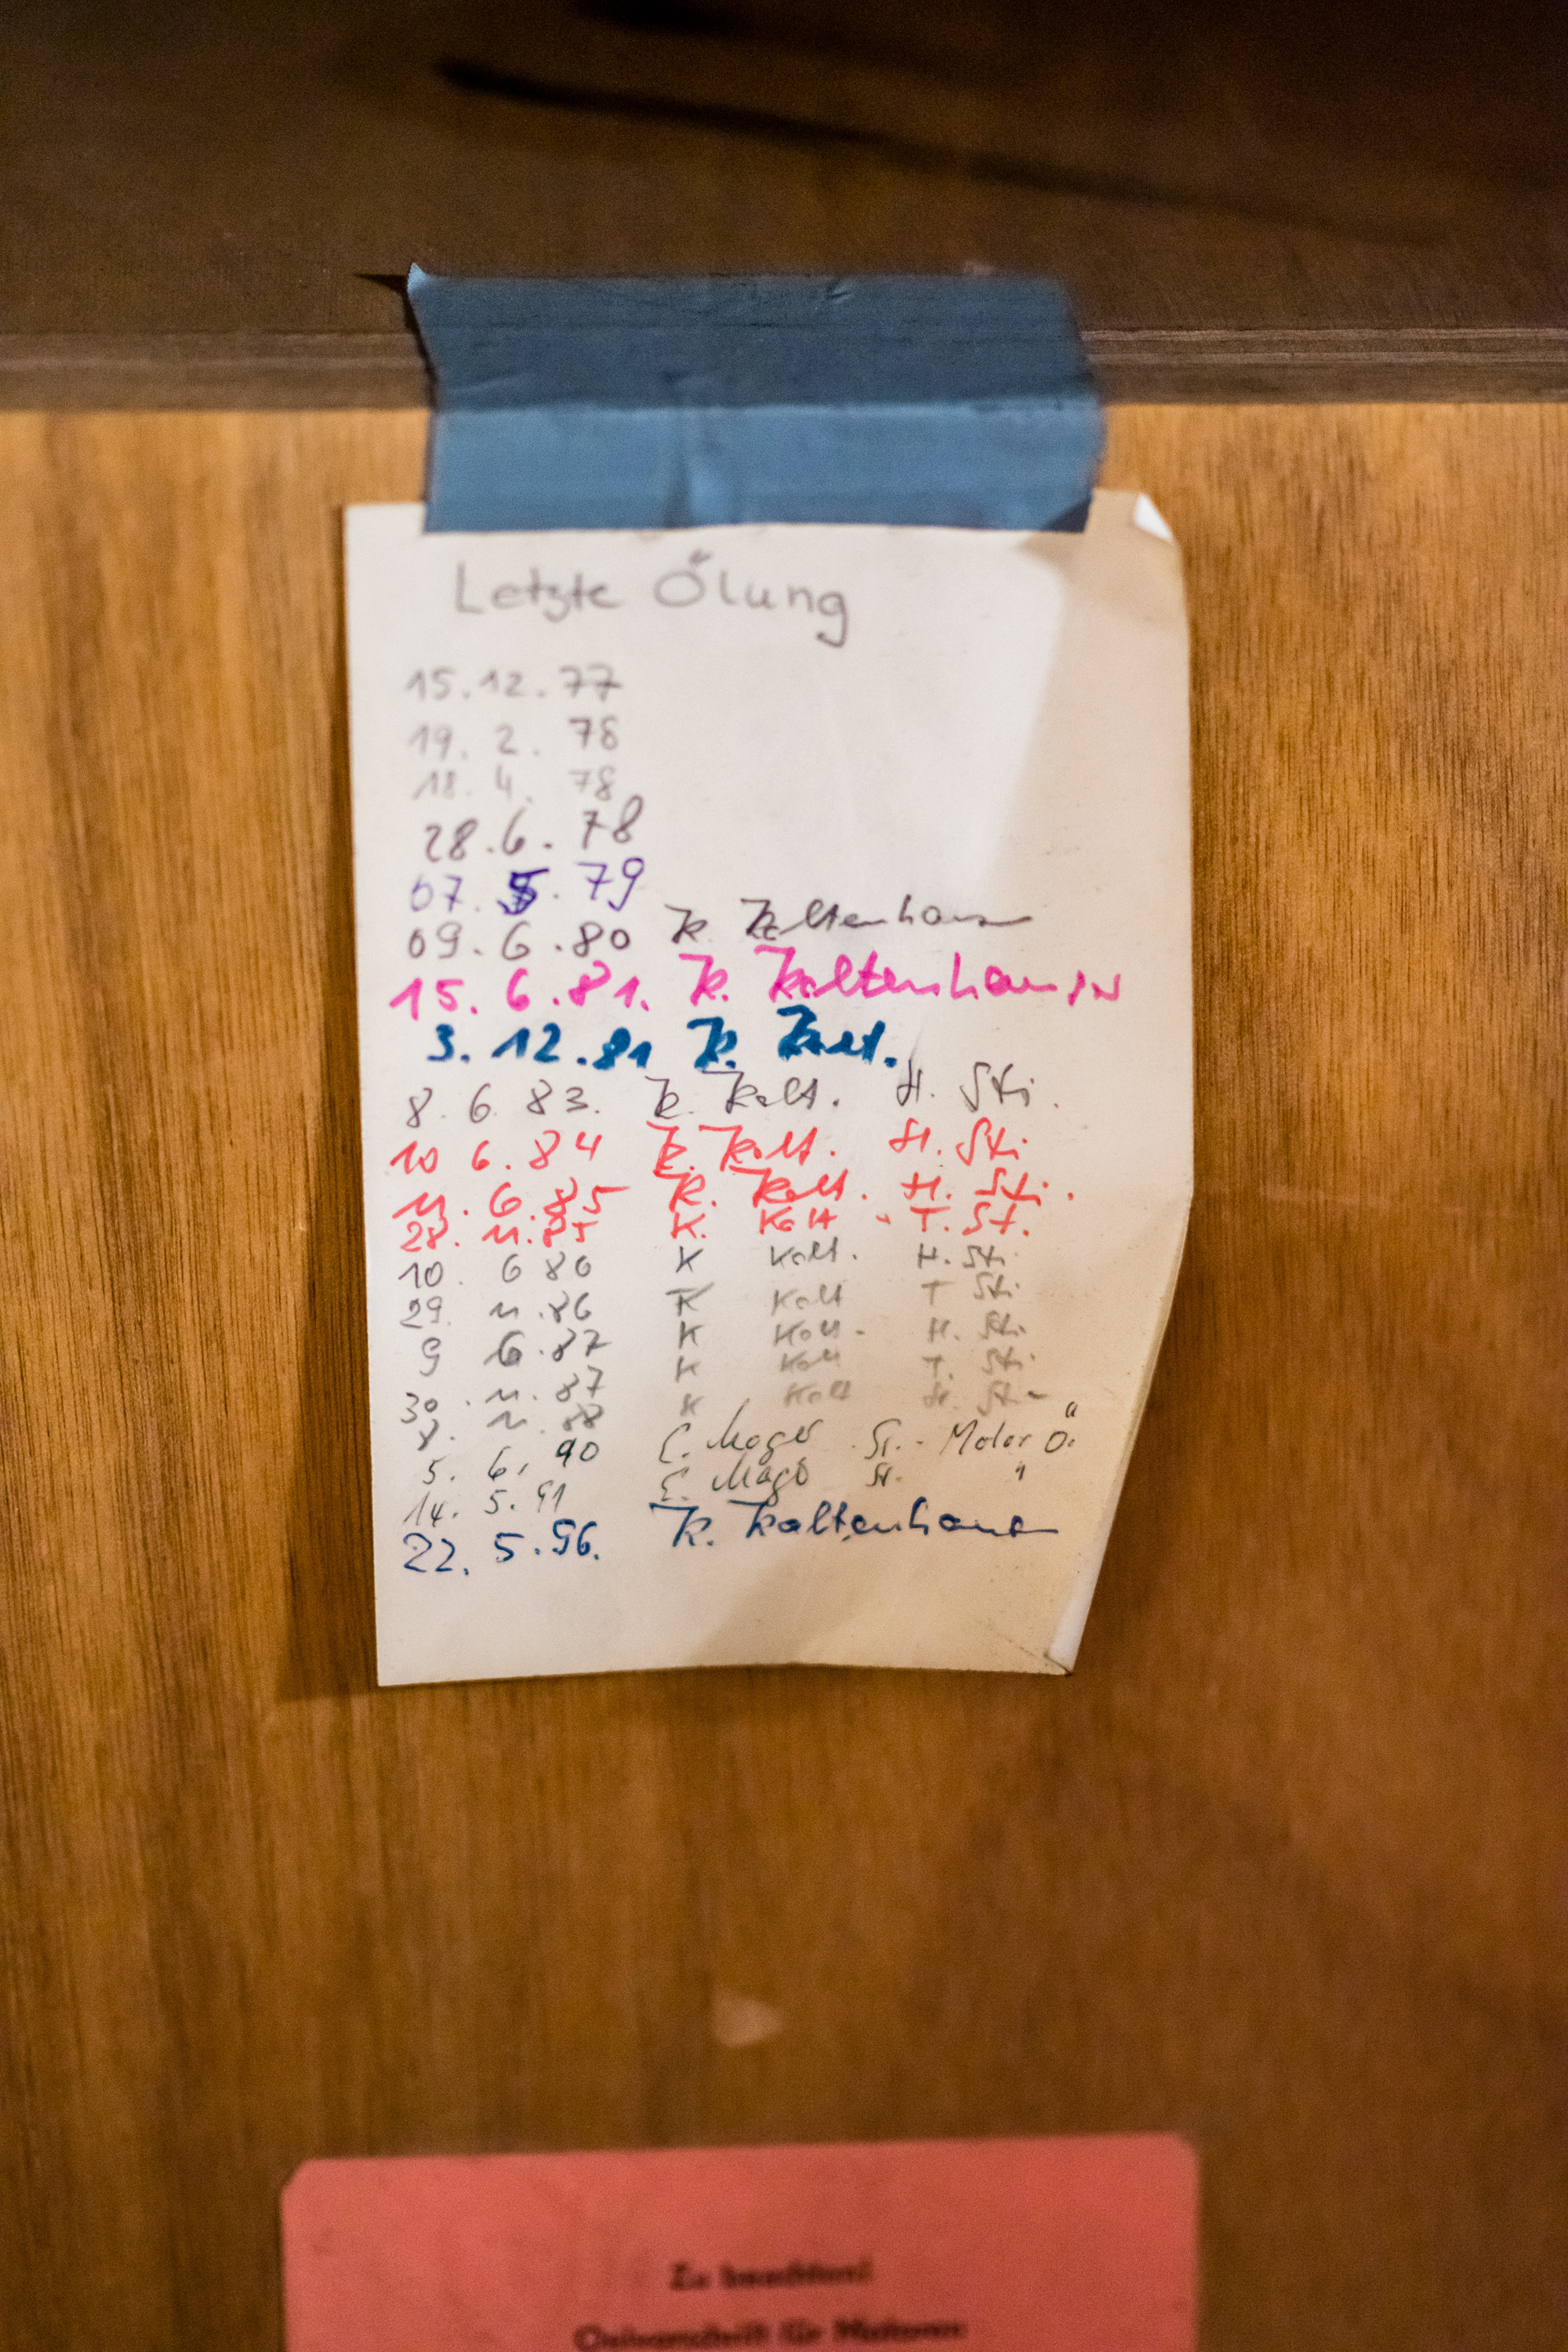 Letzte Ölung
15.12.77
19. 2. 78
18. 4. 78
28.6. 78
07. 5. 79
09. 6. 80 K. Kaltenhaus
15. 6. 81. K. Kaltenhauser
3. 12. 81 K. Kalt.
8. 6. 83. K. Kalt. H. Sti.
10 6. 84 K. Kalt. H. Sti
11. 6. 85 K. Kalt. H. Sti.
28. 11. 85 K. Kalt. T. St.
10. 6 86 K Kalt. H. Sti
29. 11. 86 K Kalt T Sti
9 6. 87 K Kalt. H. Sti
30. 11. 87 K Kalt T. Sti
8. 11. 88 K Kalt H. St.
5. 6. 90 E. Mager St. - Motor Ö.
14. 5. 91 E. Mag St. "
22. 5. 96. K. Kaltenhaus
Zu beachten!
Oelvorschrift für Motoren